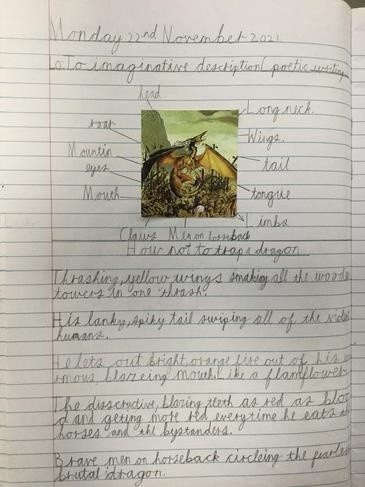 Monday 22nd November 2021
Lo: To imaginative description (poetic writing
head
Long neck.
roar
Wings.
Mountin
eyes
tail
Mouth
tongue
Limbs
Claws Men on horseback
How not to trap a dragon
Thrashing, yellow wings smaking all the
towers in one thrash.
His lanky, spiky tail swiping all of the
humans.
He lets out bright, orange fire out of his
rmous, blazeing mouth like a flamflower
The disscructive, blazing teeth as red as bloo
d and geting more red everytime he eats
horses and the bystanders.
Brave men on horseback circleing the
brutal dragon.